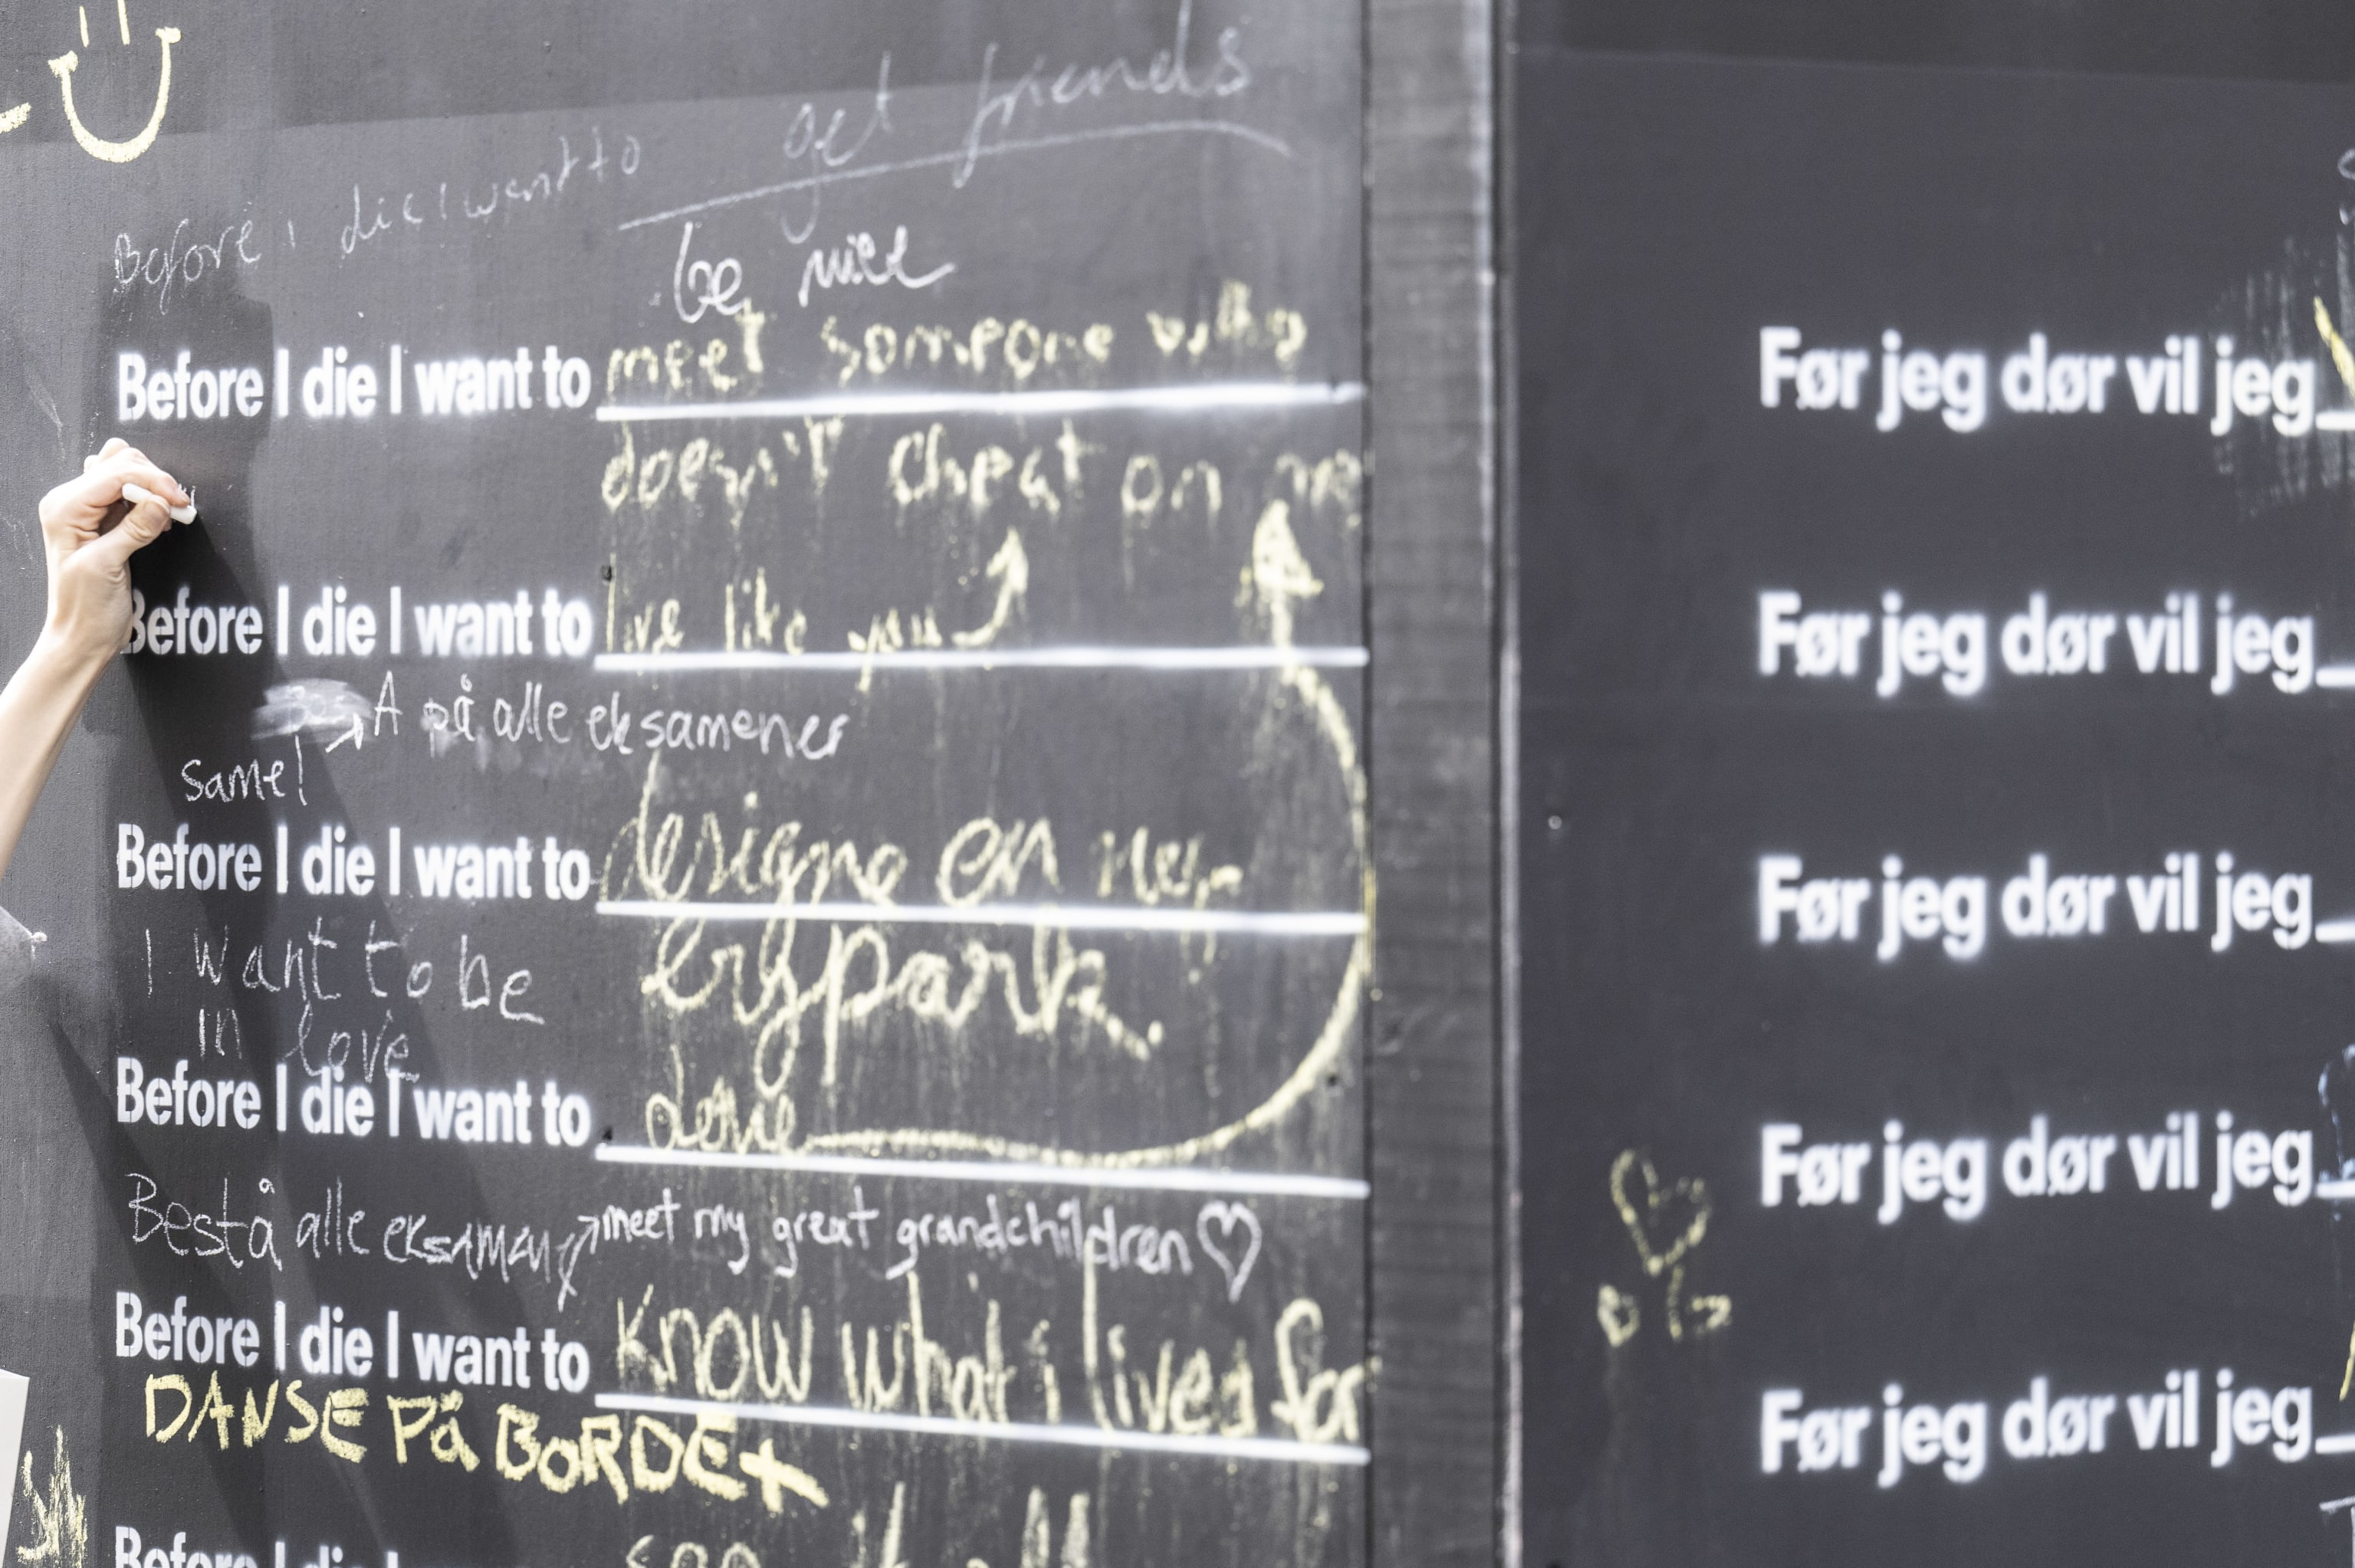 get friends
Before i die I want to
be nice
Before I die I want to meet someone who
doesn't cheat on me
Before I die I want to live like you
A på alle eksamener
same!
Before I die I want to designe en ny
I want to be
in love
Before I die I want to
Bestå alle eksamen
meet my great grandchildren
Before I die I want to know what i lived for
DANSE På BORDET
Before I die I
Før jeg dør vil jeg
Før jeg dør vil jeg
Før jeg dør vil jeg
Før jeg dør vil jeg
Før jeg dør vil jeg